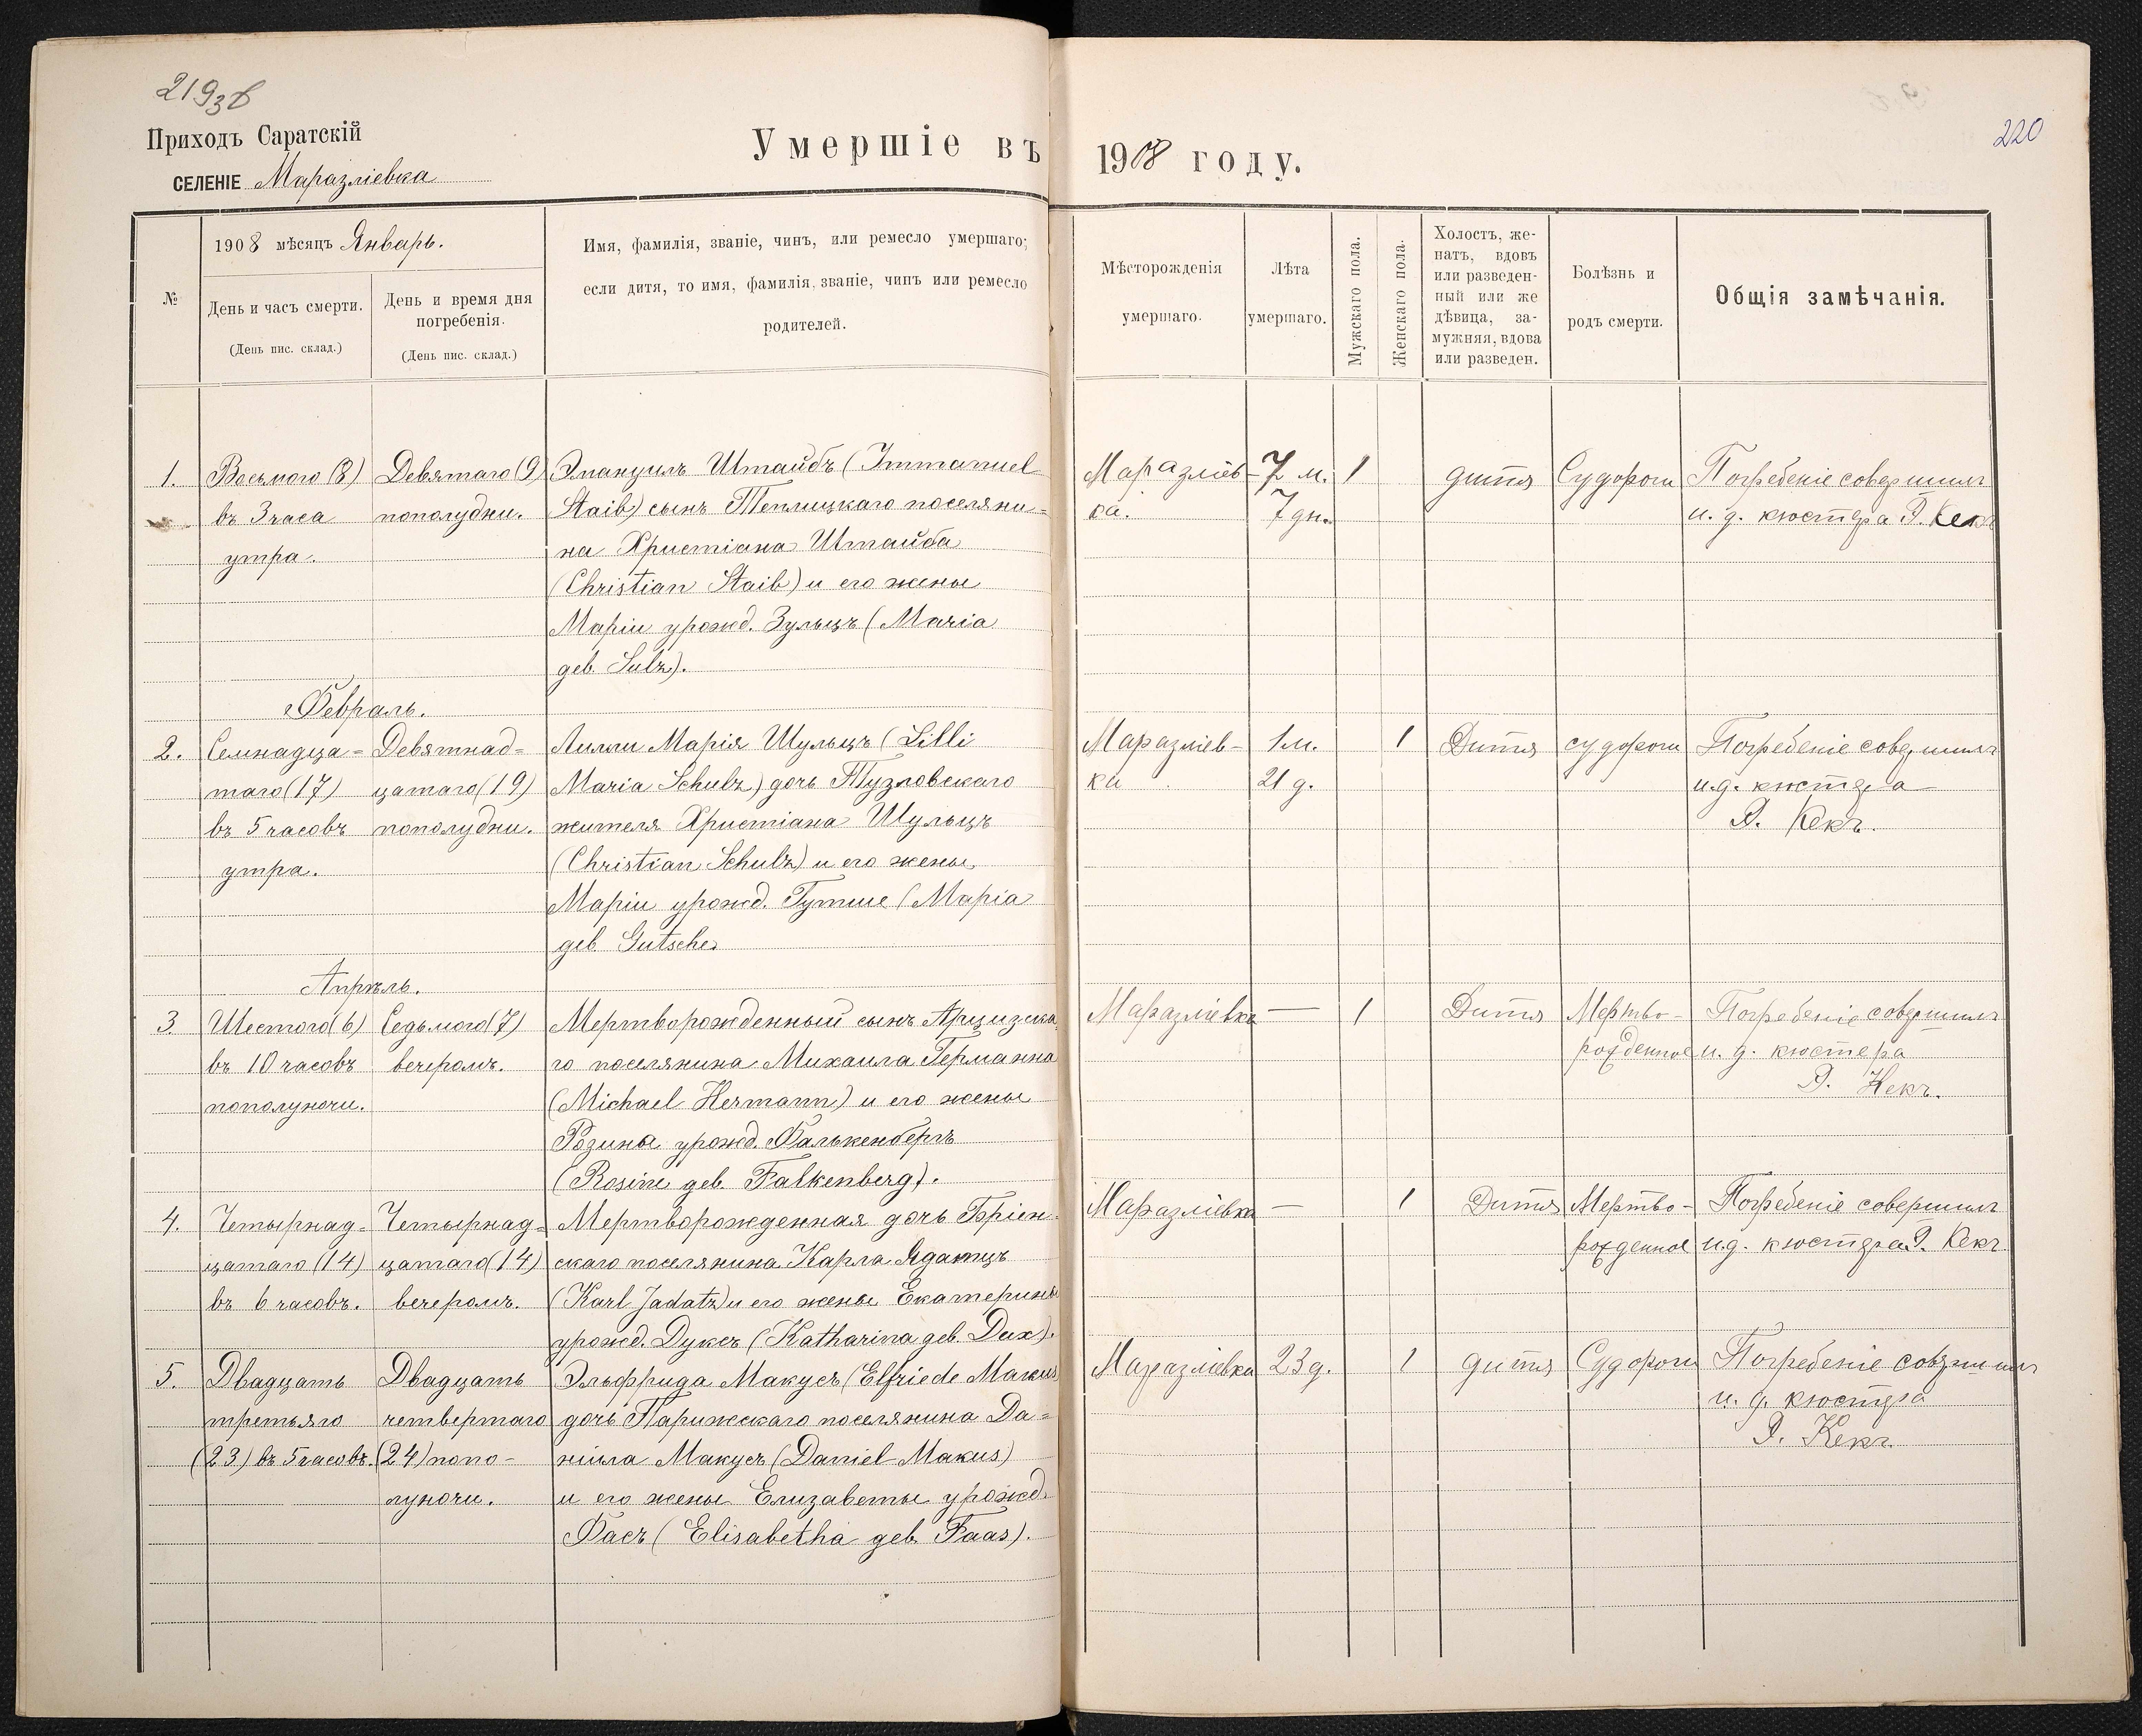 219 зб
Приходъ Саратскій
СЕЛЕНІЕ Маразліевка
Умершіе въ 1908 году.
220
№
1908 мѣсяцъ Январь.
День и часъ смерти.
(День пис. склад.)
День и время дня
погребенія.
(День пис. склад.)
Имя, фамилія, званіе, чинъ, или ремесло умершаго;
если дитя, то имя, фамилія, званіе, чинъ или ремесло
родителей.
Мѣсторожденія
умершаго.
Лѣта
умершаго.
Мужскаго пола.
Женскаго пола.
Холостъ, же-
натъ, вдовъ
или разведен-
ный или же
дѣвица, за-
мужняя, вдова
или разведен.
Болѣзнь и
родъ смерти.
Общія замѣчанія.
1. Восьмого (8) Девятаго (9) Эмануилъ Штайбъ (Immanuel Маразліев- 7 м. 1 дитя Судороги Погребеніе совершилъ
въ 3 часа пополудни. Staib) сынъ Теплицкаго поселяни- ка. 7 дн. и. д. кюстера Э. Кекъ
утра. на Христіана Штайба
(Christian Staib) и его жены
Маріи урожд. Зульцъ (Maria
geb. Sulz).
Февраль.
2. Семнадца= Девятнад= Лилли Марія Шульцъ (Lilli Маразліев- 1 м. 1 Дитя судороги Погребеніе совершилъ
таго (17) цатаго (19) Maria Schulz) дочь Тузловскаго ка 21 д. и. д. кюстера
въ 5 часовъ пополудни. жителя Христіана Шульцъ Э. Кекъ.
утра. (Christian Schulz) и его жены,
Маріи урожд. Гутше (Марія
geb. Gutsche)
Апрѣль.
3. Шестого (6) Седьмого (7) Мертворожденный сынъ Арцизска Маразліевка — 1 Дитя Мертво- Погребеніе совершилъ
въ 10 часовъ вечеромъ. го поселянина Михаила Германна рожденное и. д. кюстера
пополуночи. (Michael Hermann) и его жены Э. Кекъ.
Розины урожд. Фалькенбергъ
(Rosine geb. Falkenberg).
4. Четырнад= Четырнад= Мертворожденная дочь Бріен- Маразліевка — 1 Дитя Мертво- Погребеніе совершилъ
цатаго (14) цатаго (14) скаго поселянина Карла Ядатцъ рожденное и. д. кюстера Э. Кекъ
въ 6 часовъ. вечеромъ. (Karl Jadatz) и его жены Екатерины
урожд. Дуксъ (Katharina geb. Dux).
5. Двадцать Двадцать Эльфрида Макусъ (Elfriede Makus) Маразліевка 23 д. 1 дитя Судороги Погребеніе совершилъ
третьяго четвертаго дочь Парижскаго поселянина Да= и. д. кюстера
(23) въ 5 часовъ. (24) попо- ніила Макусъ (Daniel Makus) Э. Кекъ
луночи. и его жены Елизаветы урожд.
Фасъ (Elisabetha geb. Faas).